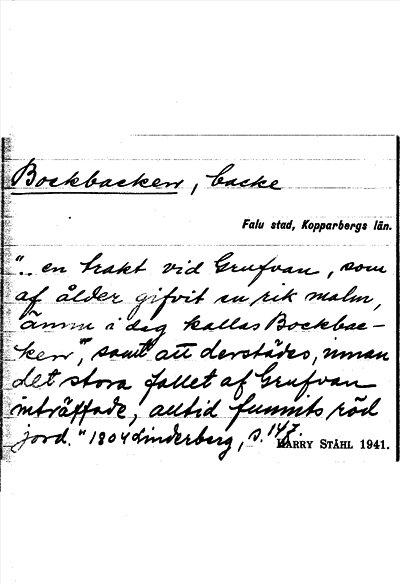 Bockbacken, backe
Falu stad, Kopparbergs län.
"... en trakt vid Grufvan, som
af ålder gifvit en rik malm,
ännu i dag kallas Bockbac-
ken", samt att derstädes, innan
det stora fallet af Grufvan
inträffade, alltid funnits röd
jord." 1804 Linderberg, s. 147.
HARRY STÅHL 1941.